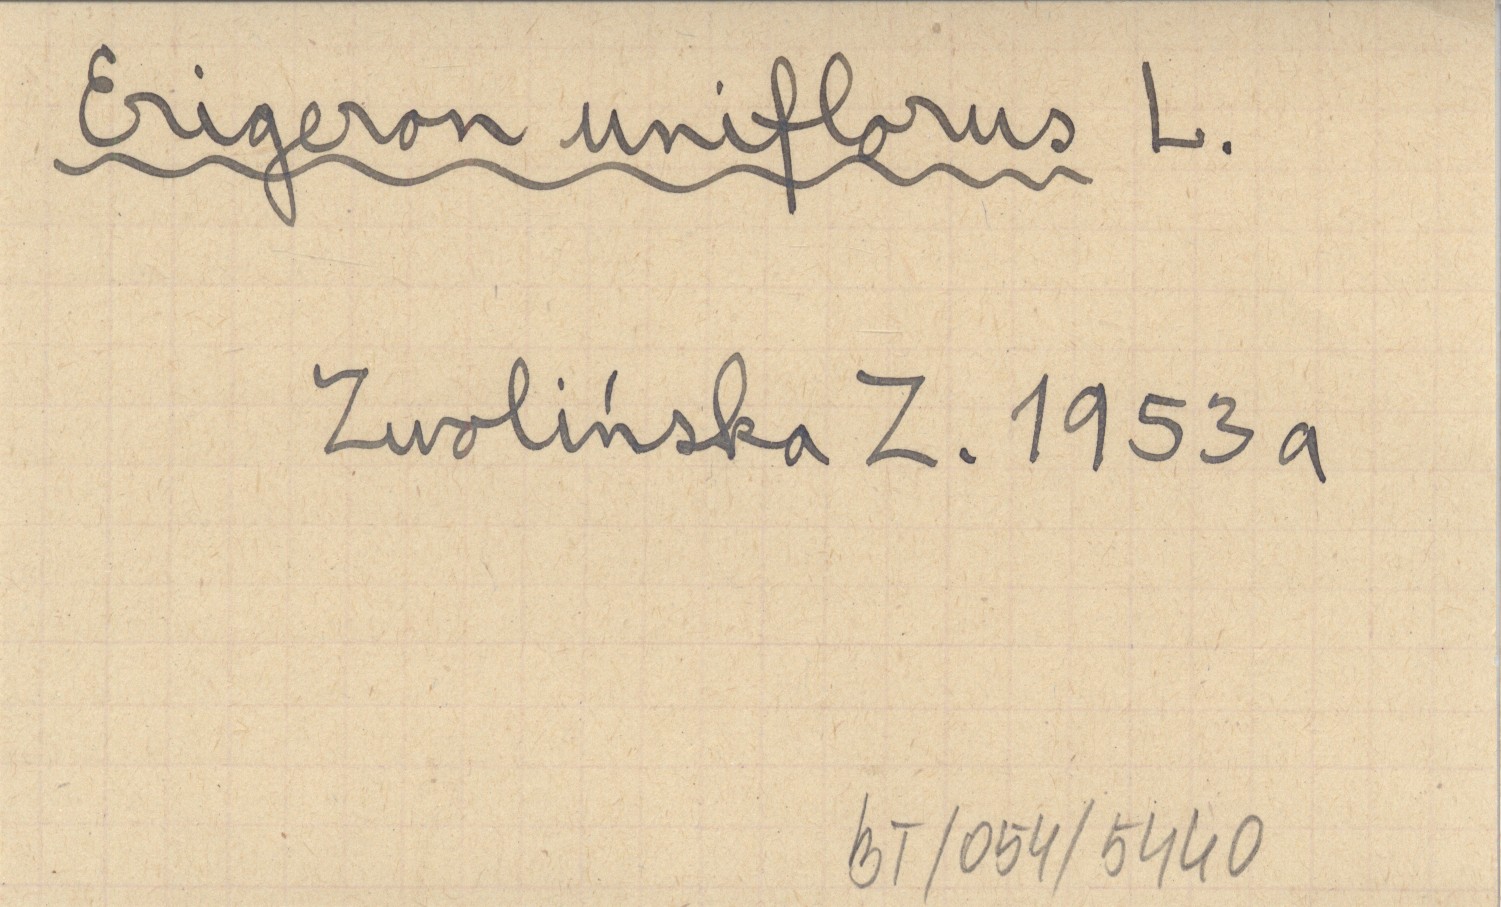 Erigeron uniflorus L.
Zwolińska Z. 1953a
BT/054/5440